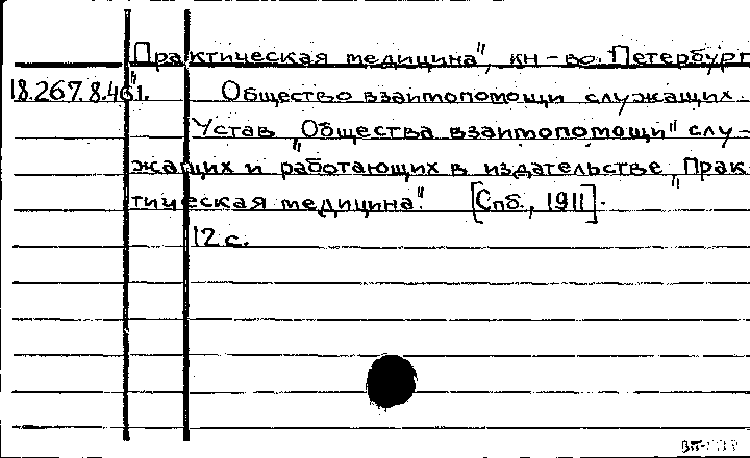 „Практическая медицина", кн-во. Петербург
18.267.8.461. Общество взаимопомощи служащих.
Устав „Общества взаимопомощи" слу-
жащих и работающих в издательстве „Прак-
тическая медицина". [Спб., 1911].
12 с.